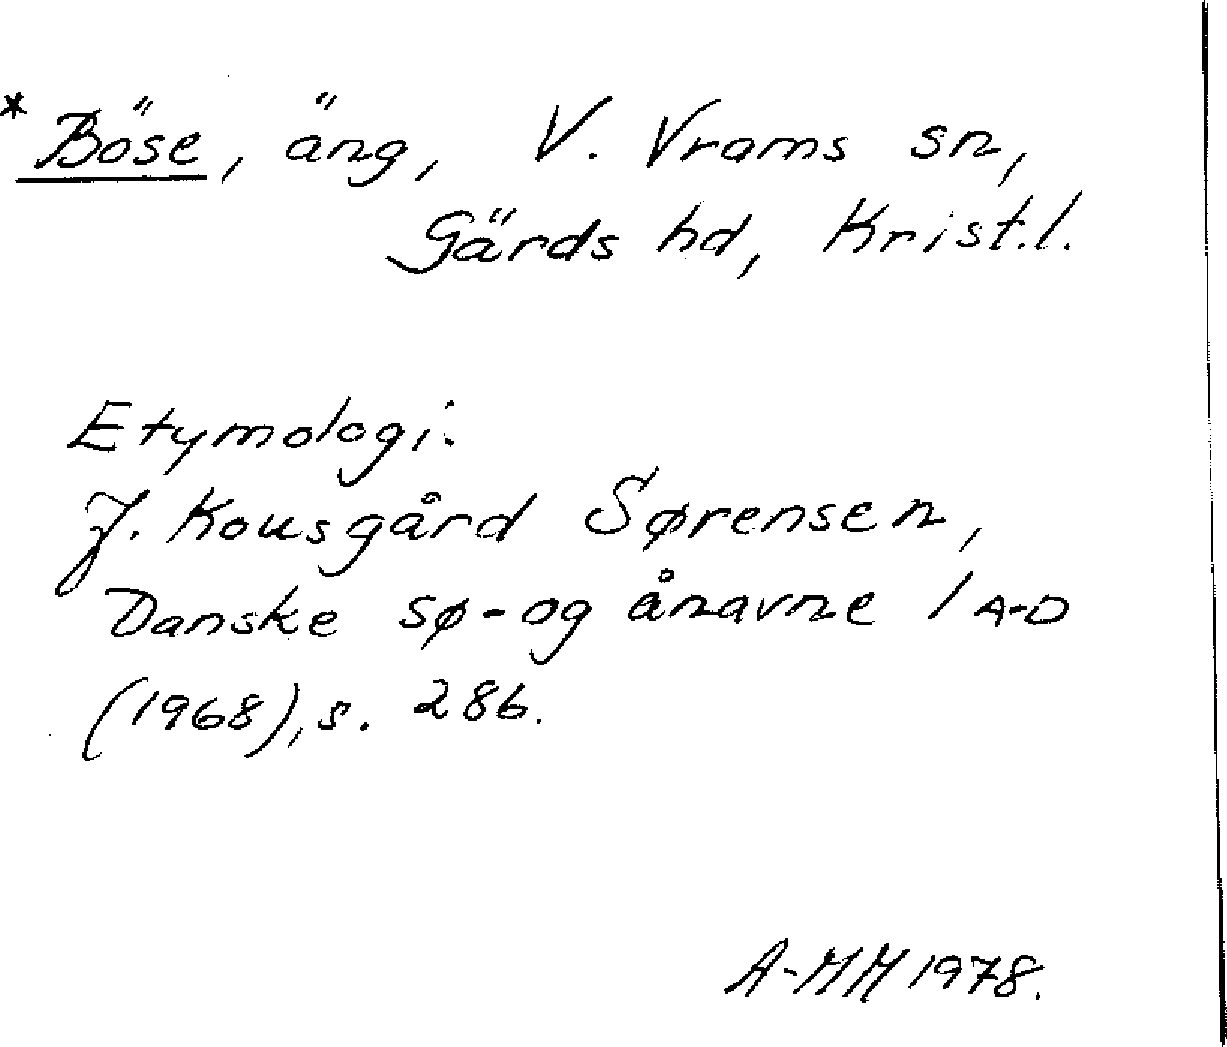 * Böse, äng, V. Vrams sn,
Gärds hd, Krist.l.
Etymologi:
J. Kousgård Sørensen,
Danske sø- og ånavne 1 A-D
(1968), s. 286.
A-MH 1978.